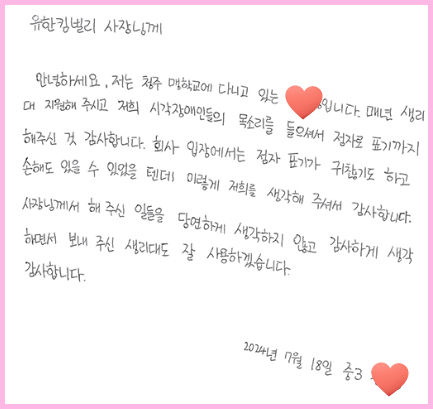 유한킴벌리 사장님께
안녕하세요, 저는 청주 맹학교에 다니고 있는 입니다. 매년 생리
대 지원해 주시고 저희 시각장애인들의 목소리를 들으셔서 점자로 표기까지
해주신 것 감사합니다. 회사 입장에서는 점자 표기가 귀찮기도 하고
손해도 있을 수 있었을 텐데 이렇게 저희를 생각해 주셔서 감사합니다.
사장님께서 해 주신 일들을 당연하게 생각하지 않고 감사하게 생각
하면서 보내 주신 생리대도 잘 사용하겠습니다.
감사합니다.
2024년 7월 18일 중3